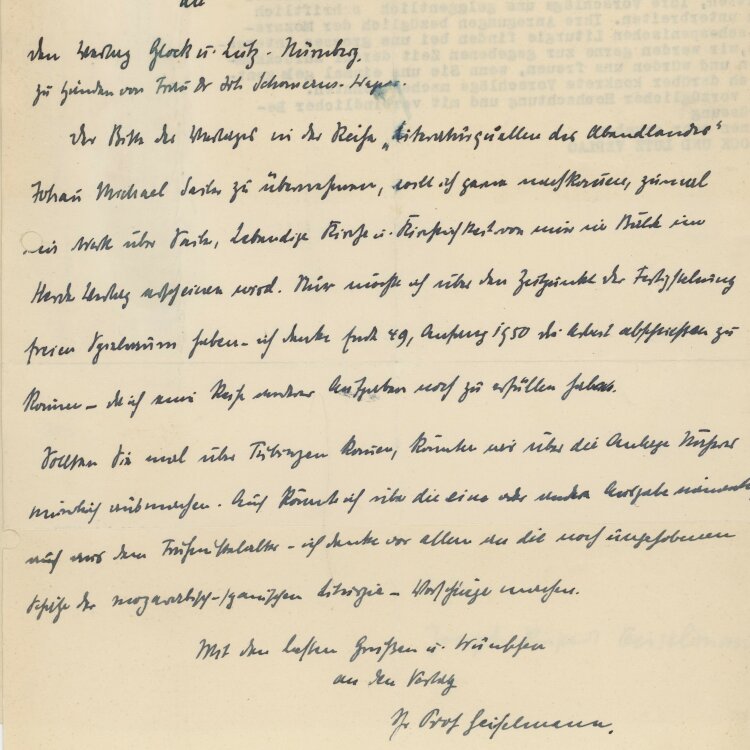 An
den Verlag Glock u. Lutz - Nürnberg,
zu Händen von Frau Dr
Der Bitte des Verlages in der Reihe „Literaturquellen des Abendlandes"
Johann Michael Sailer zu übernehmen, will ich gerne nachkommen, zumal
ein Werk über Sailer, Lebendige Kirche u. Kirchlichkeit von mir in Bälde im
Herder Verlag erscheinen wird. Nur möchte ich über den Zeitpunkt der Fertigstellung
freien Spielraum haben - ich denke Ende 49, Anfang 1950 die Arbeit abschliessen zu
können - da ich eine Reihe anderer Aufgaben noch zu erfüllen habe.
Sollten Sie mal über Tübingen kommen, könnten wir über die Anlage Näheres
mündlich ausmachen. Auch könnte ich über die eine oder andere Ausgabe
auch aus dem Frühmittelalter - ich denke vor allem an die noch ungehobenen
Schätze der mozarabisch-spanischen Liturgie - Vorschläge machen.
Mit den besten Grüßen u. Wünschen
an den Verlag
Ihr Prof Geiselmann.